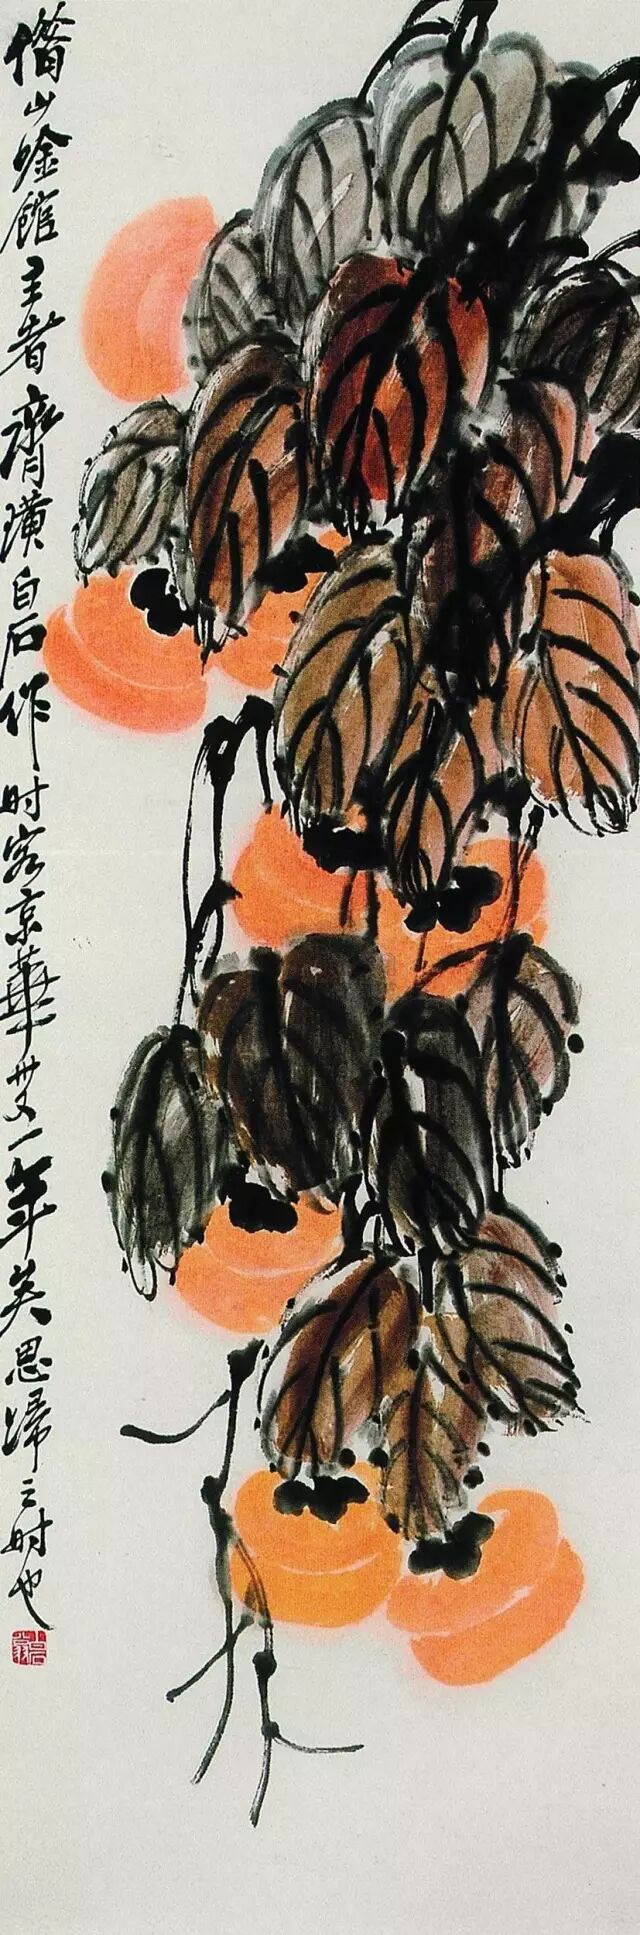 借山唫館主者齊璜白石作时客京華廿又一年矣思歸之时也
白石翁